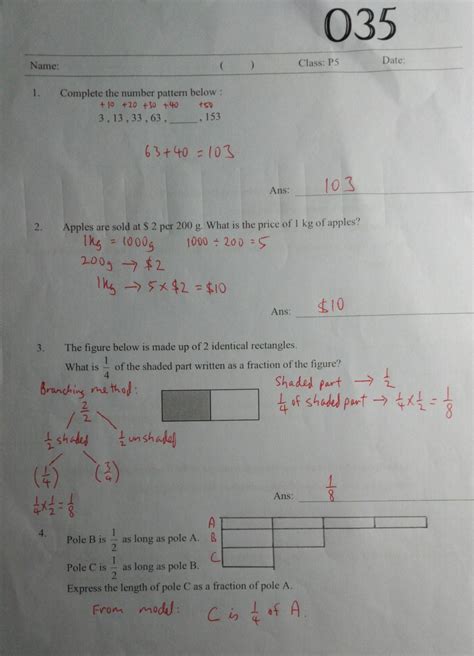 035
Name: ( ) Class: P5 Date:
1. Complete the number pattern below :
+10 +20 +30 +40 +50
3 , 13 , 33 , 63 , _____ , 153
63 + 40 = 103
Ans: 103
2. Apples are sold at $ 2 per 200 g. What is the price of 1 kg of apples?
1kg = 1000g 1000 ÷ 200 = 5
200g → $2
1kg → 5 × $2 = $10
Ans: $10
3. The figure below is made up of 2 identical rectangles.
What is 1/4 of the shaded part written as a fraction of the figure?
Branching method:
2/2
1/2 shaded 1/2 unshaded
(1/4) (3/4)
1/4 × 1/2 = 1/8
Shaded part → 1/2
1/4 of shaded part → 1/4 × 1/2 = 1/8
Ans: 1/8
4. Pole B is 1/2 as long as pole A.
Pole C is 1/2 as long as pole B.
A
B
C
Express the length of pole C as a fraction of pole A.
From model: C is 1/4 of A.